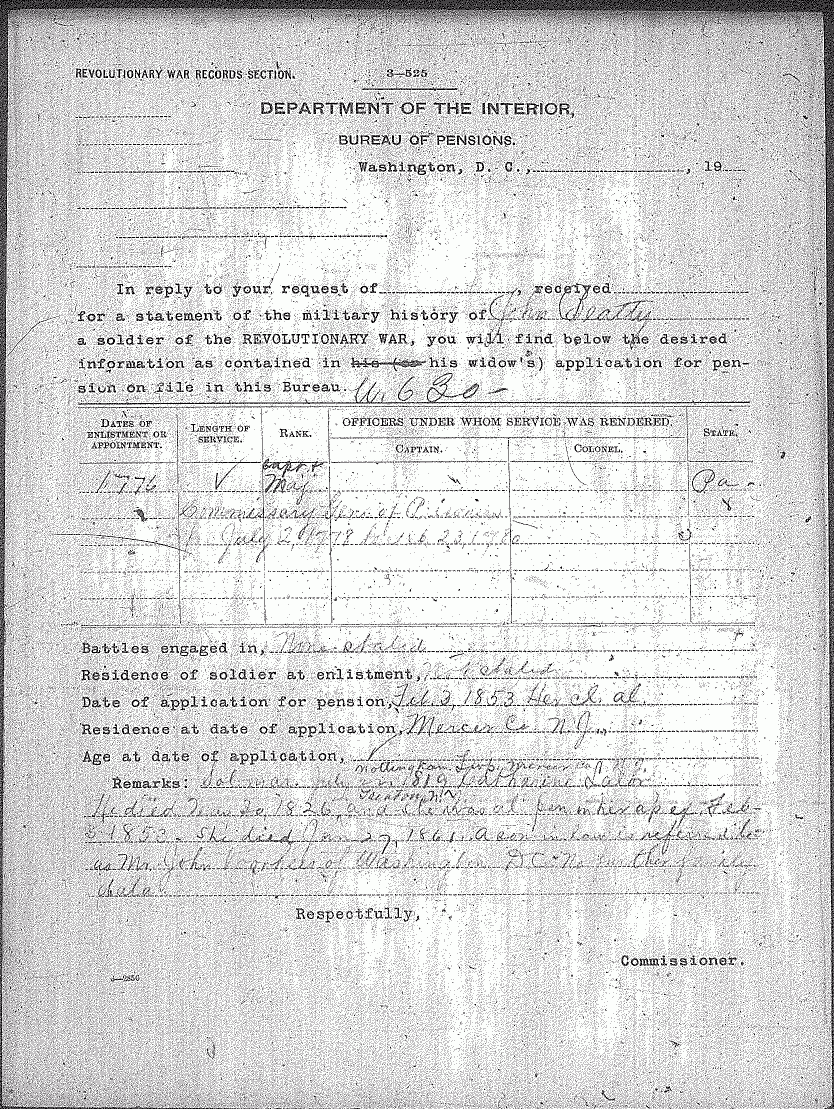 REVOLUTIONARY WAR RECORDS SECTION. 3—525
DEPARTMENT OF THE INTERIOR,
BUREAU OF PENSIONS.
Washington, D. C., , 19
In reply to your request of , received
for a statement of the military history of John Beatty
a soldier of the REVOLUTIONARY WAR, you will find below the desired
information as contained in his (or his widow's) application for pen-
sion on file in this Bureau. W. 630 –
DATES OF ENLISTMENT OR APPOINTMENT. LENGTH OF SERVICE. RANK. OFFICERS UNDER WHOM SERVICE WAS RENDERED. STATE.
CAPTAIN. COLONEL.
Capt. &
1776 Maj Pa -
Commissary Gen. of Prisoners
July 2, 1778 to Feb 23, 1780
Battles engaged in, None stated
Residence of soldier at enlistment, Not stated
Date of application for pension, Feb. 3, 1853 Her cl. al.
Residence at date of application, Mercer Co N.J.
Age at date of application,
Nottingham Twp. Mercer co N.J.
Remarks: Sol mar. 1819 Katharine Lalor
Trenton, N.J.
He died 30, 1826, and she was al pen on her ap of Feb-
3 1853 - She died Jan 27, 1861. A son in law is referred to
as Mr. John Voorhees of Washington DC - No further family
data.
Respectfully,
Commissioner.